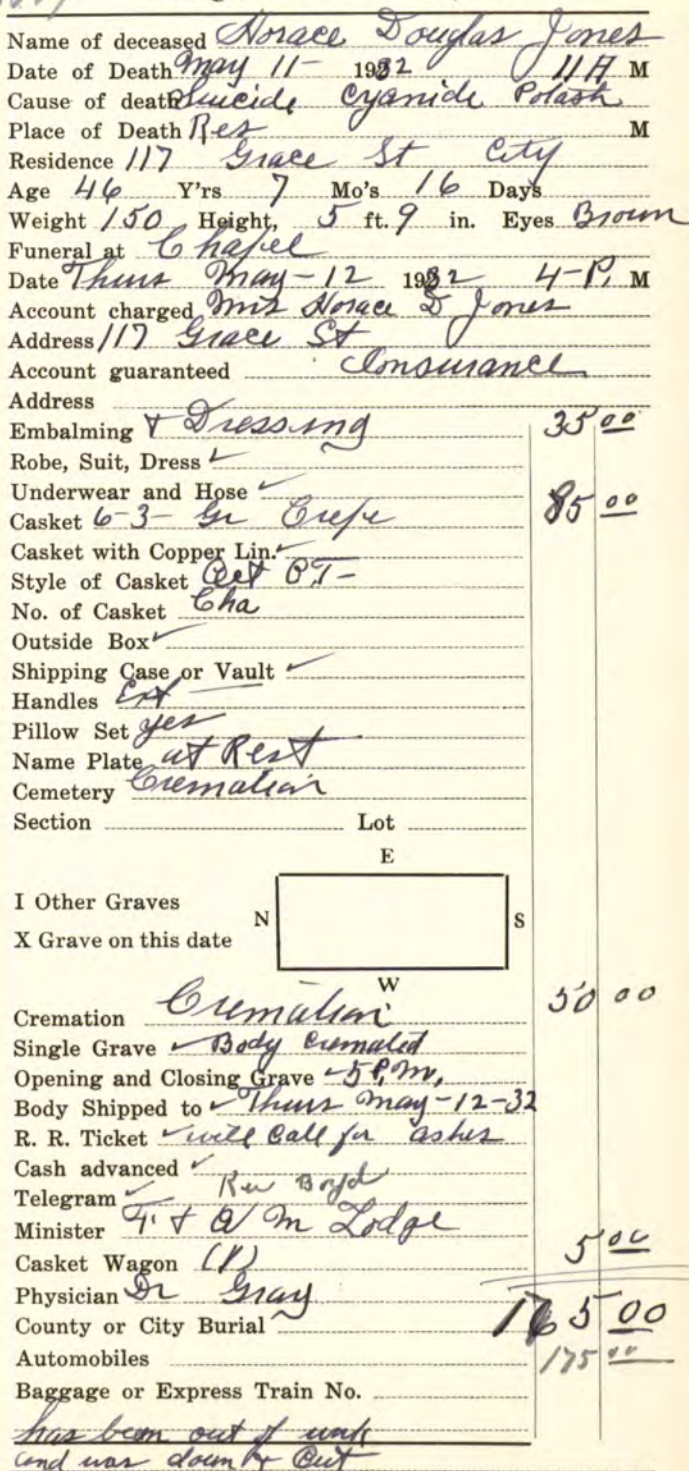 Name of deceased Horace Douglas Jones
Date of Death May 11- 1932 11 A M
Cause of death Suicide Cyanide Potash
Place of Death Res M
Residence 117 Grace St City
Age 46 Y'rs 7 Mo's 16 Days
Weight 150 Height, 5 ft. 9 in. Eyes Brown
Funeral at Chapel
Date Thurs May-12 1932 4-P. M
Account charged Mrs Horace D Jones
Address 117 Grace St
Account guaranteed Insurance
Address
Embalming & Dressing 35 00
Robe, Suit, Dress ✓
Underwear and Hose ✓
Casket 6-3- Gr Crepe 85 00
Casket with Copper Lin. ✓
Style of Casket Oct
No. of Casket Cha
Outside Box ✓
Shipping Case or Vault ✓
Handles Ext
Pillow Set yes
Name Plate at Rest
Cemetery Cremation
Section Lot
E
I Other Graves
N S
X Grave on this date
W
Cremation Cremation 50 00
Single Grave ✓ Body Cremated
Opening and Closing Grave ✓ 5 P.M.
Body Shipped to ✓ Thurs May-12-32
R. R. Ticket ✓ will Call for ashes
Cash advanced ✓
Telegram ✓ Rev Boyd
Minister F & A M Lodge
Casket Wagon (P) 5 00
Physician Dr Gray
County or City Burial 165 00
Automobiles 175 00
Baggage or Express Train No.
has been out of work
and was down & Out